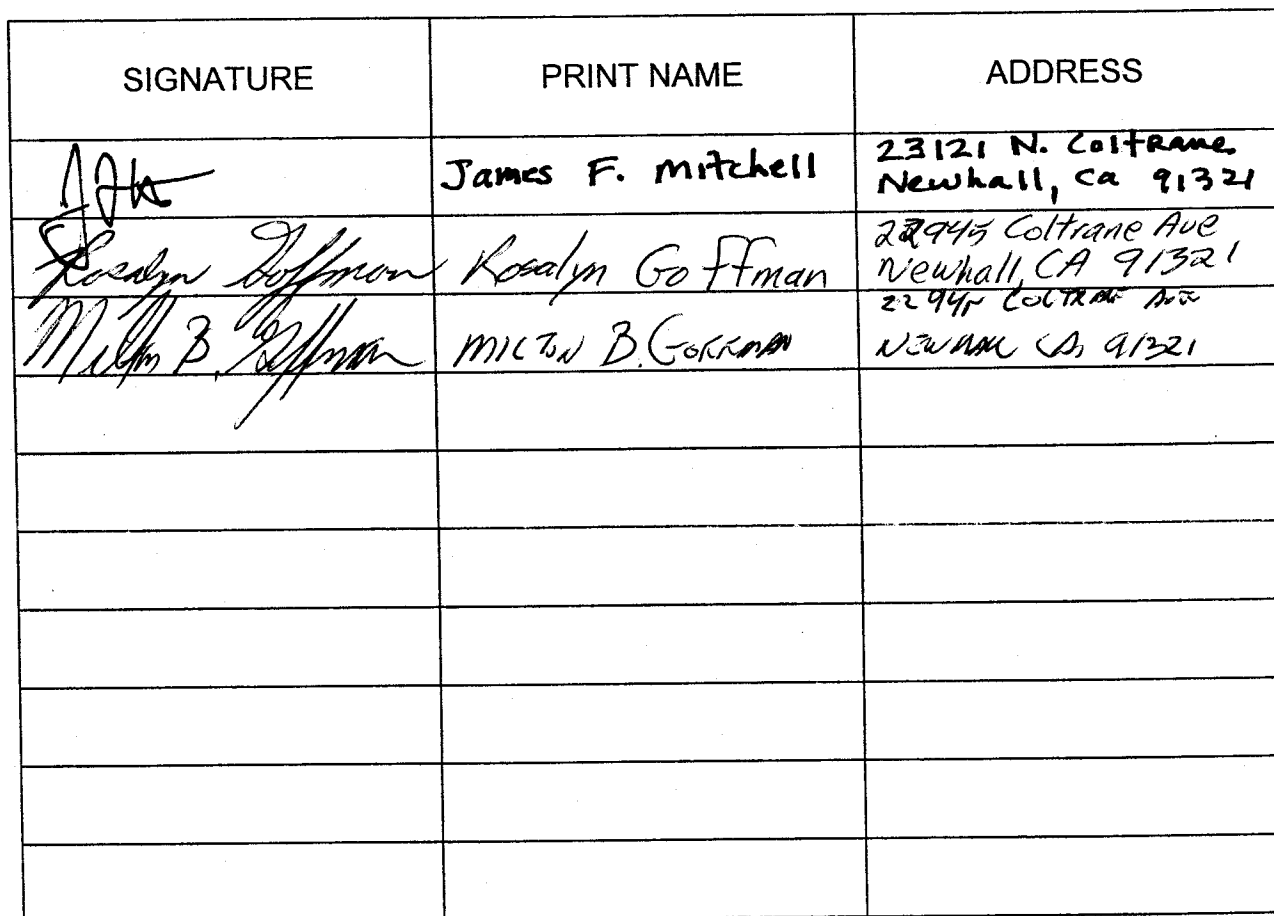 SIGNATURE PRINT NAME ADDRESS
James F. Mitchell 23121 N. Coltrane
Newhall, Ca 91321
Rosalyn Goffman Rosalyn Goffman 22945 Coltrane Ave
Newhall, CA 91321
Milton B. Goffman MILTON B. GOFFMAN 22945 COLTRANE AVE
NEWHALL CA 91321